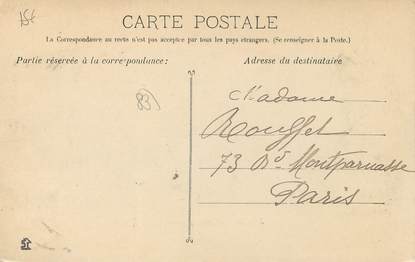 15€
CARTE POSTALE
La Correspondance au recto n'est pas acceptée par tous les pays étrangers. (Se renseigner à la Poste.)
Partie réservée à la correspondance:
Adresse du destinataire
83
Madame
Rouffet
73 Bd Montparnasse
Paris